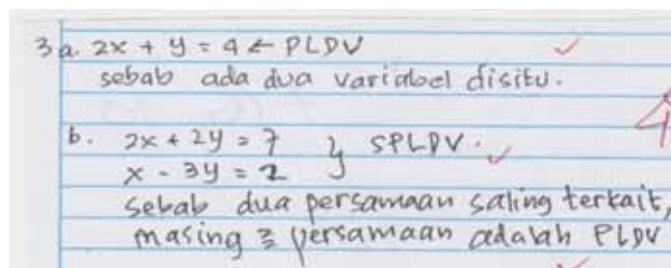 3 a. 2x + y = 4 ← PLDV
sebab ada dua variabel disitu.
b. 2x + 2y = 7 } SPLDV.
x - 3y = 2
sebab dua persamaan saling terkait,
masing 2 persamaan adalah PLDV
4